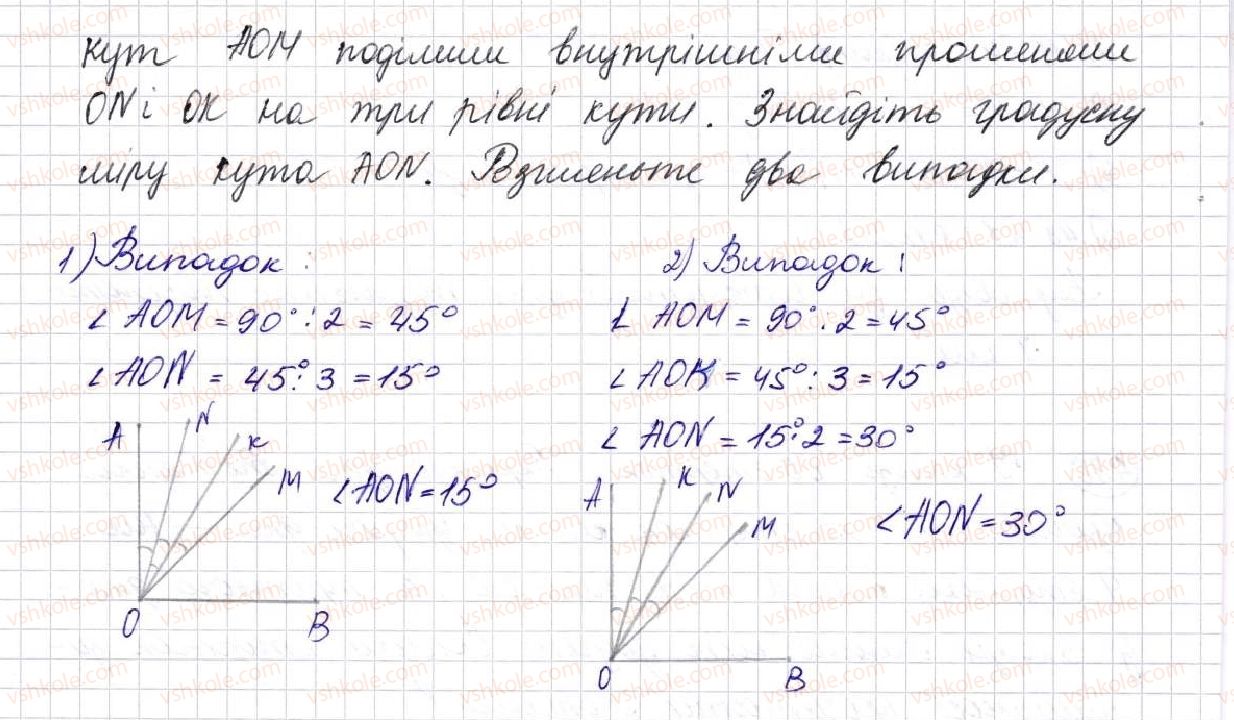 кут AOM поділили внутрішніми променями
ON і OK на три рівні кути. Знайдіть градусну
міру кута AON. Розгляньте два випадки.
1) Випадок :
∠ AOM = 90° : 2 = 45°
∠ AON = 45° : 3 = 15°
A
N
K
M
∠AON = 15°
O
B
2) Випадок :
∠ AOM = 90° : 2 = 45°
∠ AOK = 45° : 3 = 15°
∠ AON = 15° · 2 = 30°
A
K
N
M
∠AON = 30°
O
B
vshkole.com